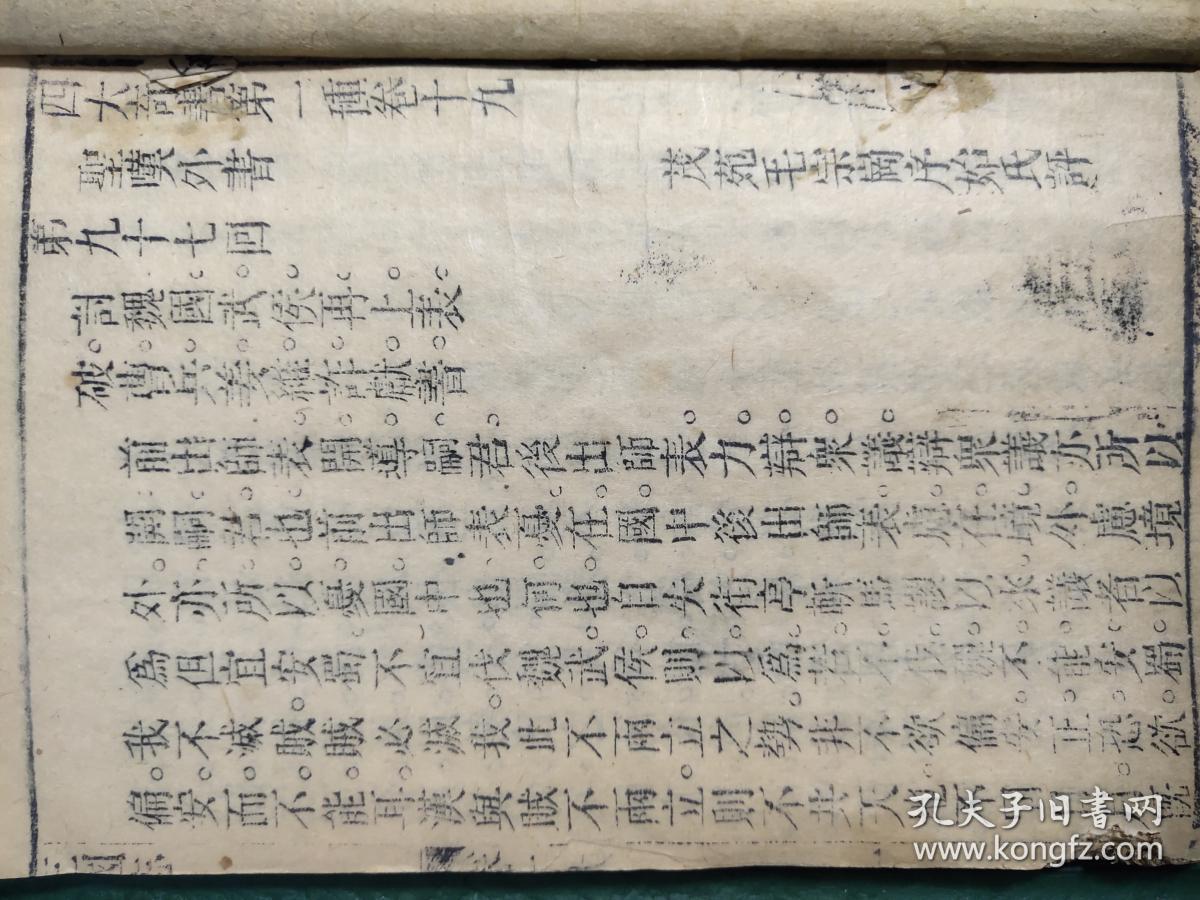 四大奇書第一種卷十九
聖嘆外書 茂苑毛宗崗序始氏評
第九十七回
討魏國武侯再上表
破曹兵姜維詐獻書
前出師表開導嗣君後出師表力辯衆議辯衆議亦所以
嗣君也前出師表憂在國中後出師表慮在境外慮境
外亦所以憂國中也何也自失街亭斬馬謖以來議者以
爲但宜安蜀不宜伐魏武侯則以爲若不伐魏不能安蜀
我不滅賊賊必滅我此不兩立之勢非不欲偏安正恐欲
偏安而不能耳漢與賊不兩立則不共天
孔夫子旧書网
www.kongfz.com